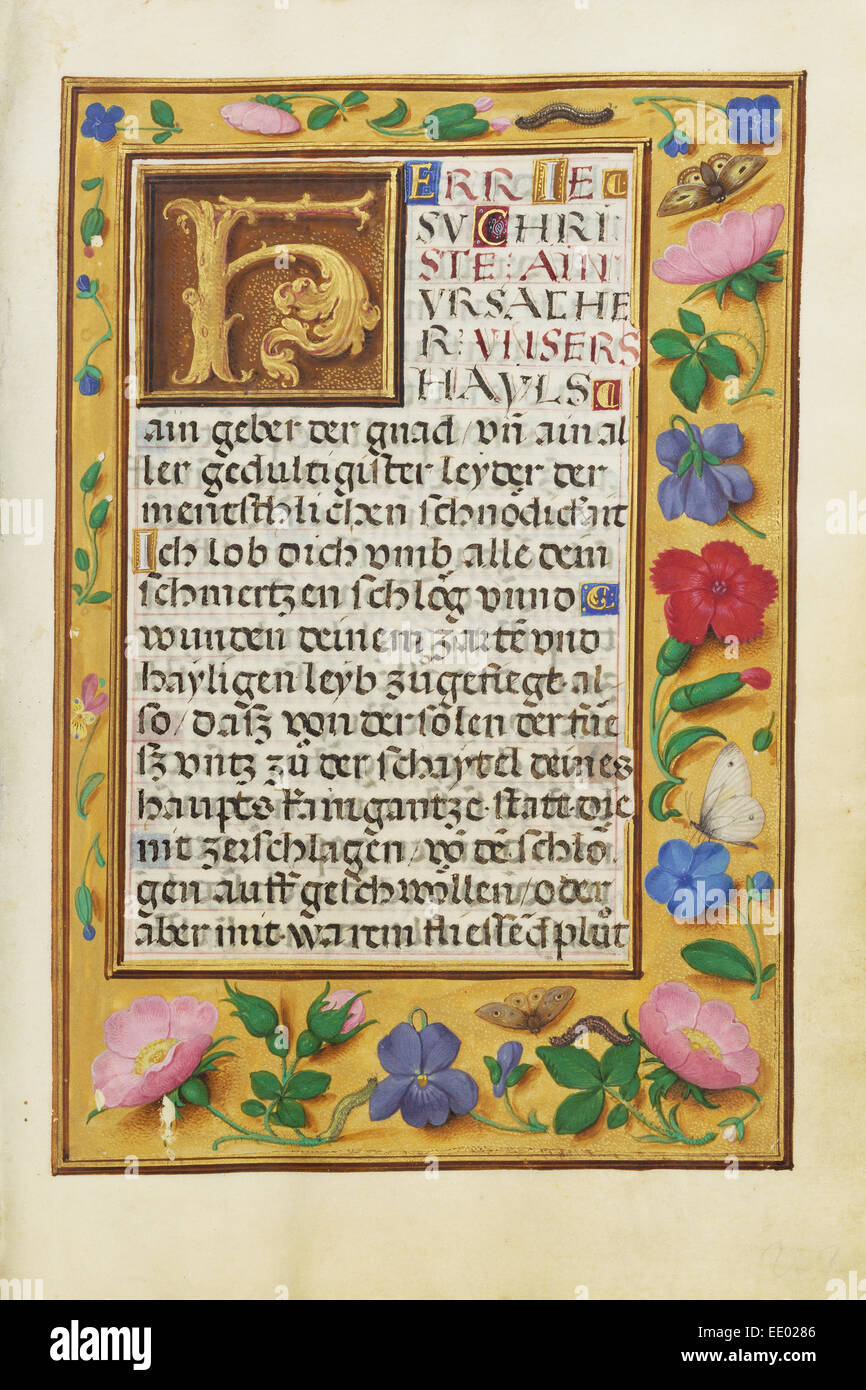 HERR IE
SV CHRI
STE: AIN
VRSACHE
R: VNSERS
HAYLS
ain geber der gnad / vn̄ ain al
ler gedultigister leyder der
mentschlichen schnödickait
Ich lob dich vmb alle dein
schmertzen schlög vnnd
wunden deinem zartē vnd
hayligen leyb zůgefiegt al
so / dasz von der solen der fue
sz vntz zů der schaytel deines
haupts kain gantze statt die
nit zerschlagen / vō dē schlö
gen auff geschwöllen / oder
aber mit warem fliessēd plůt
alamy
alamy stock photo
EE0286
www.alamy.com